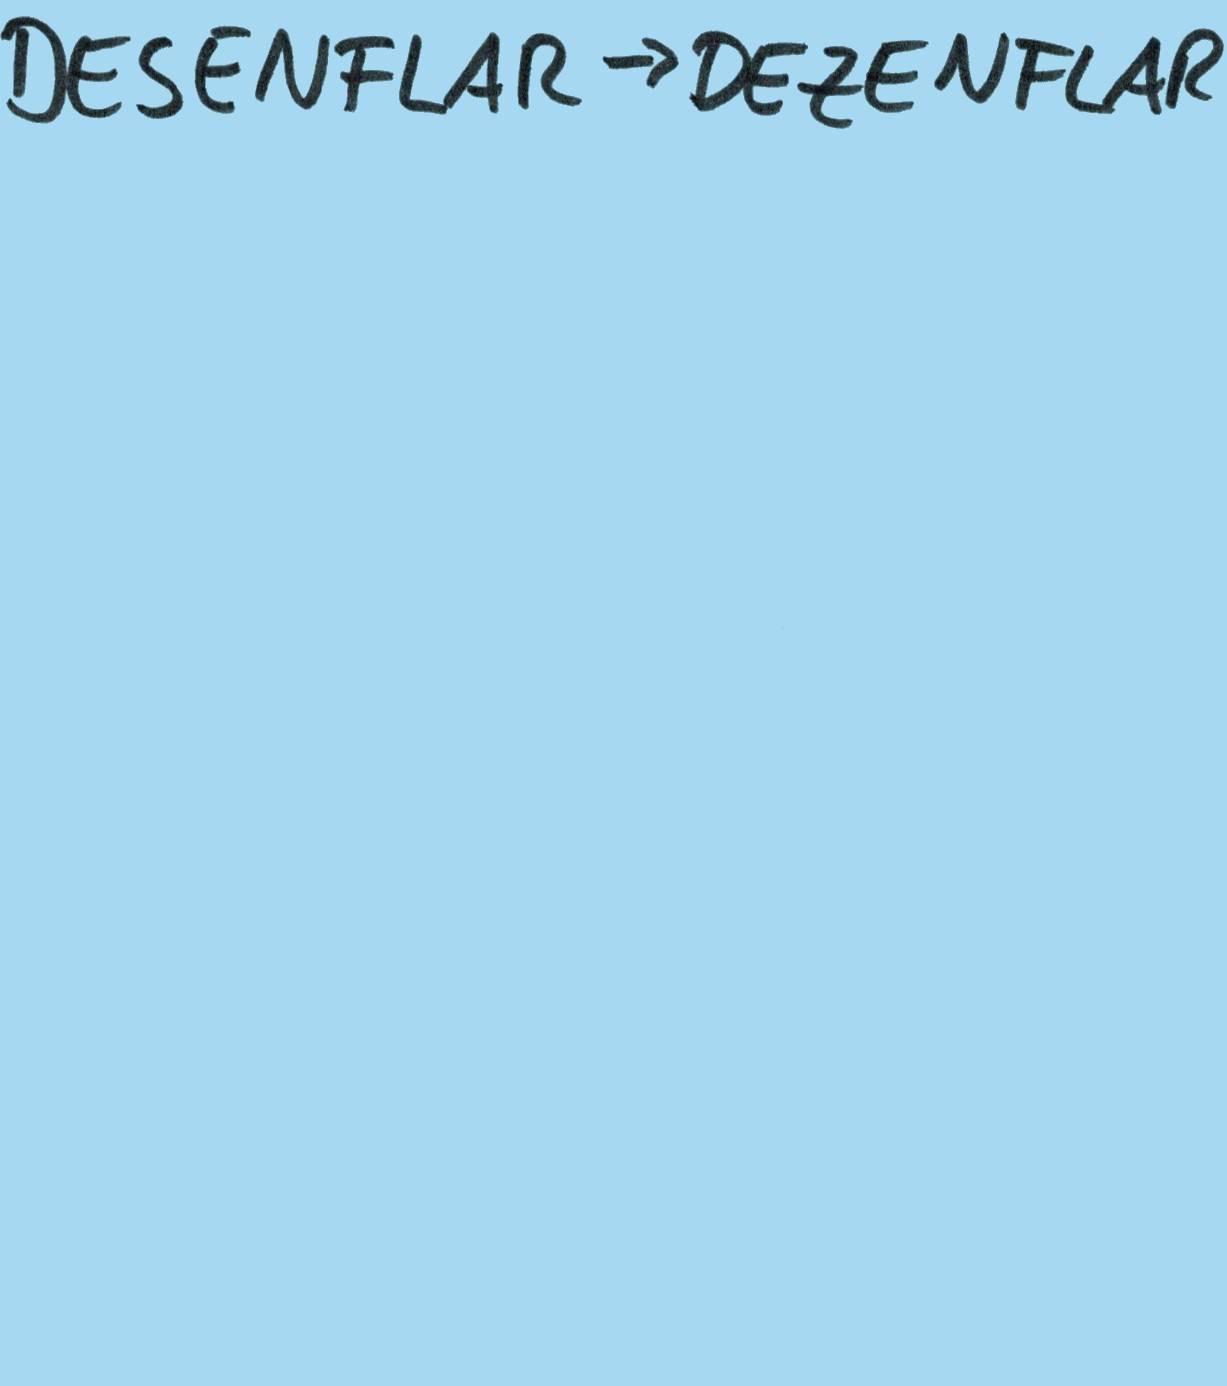 DESENFLAR → DEZENFLAR